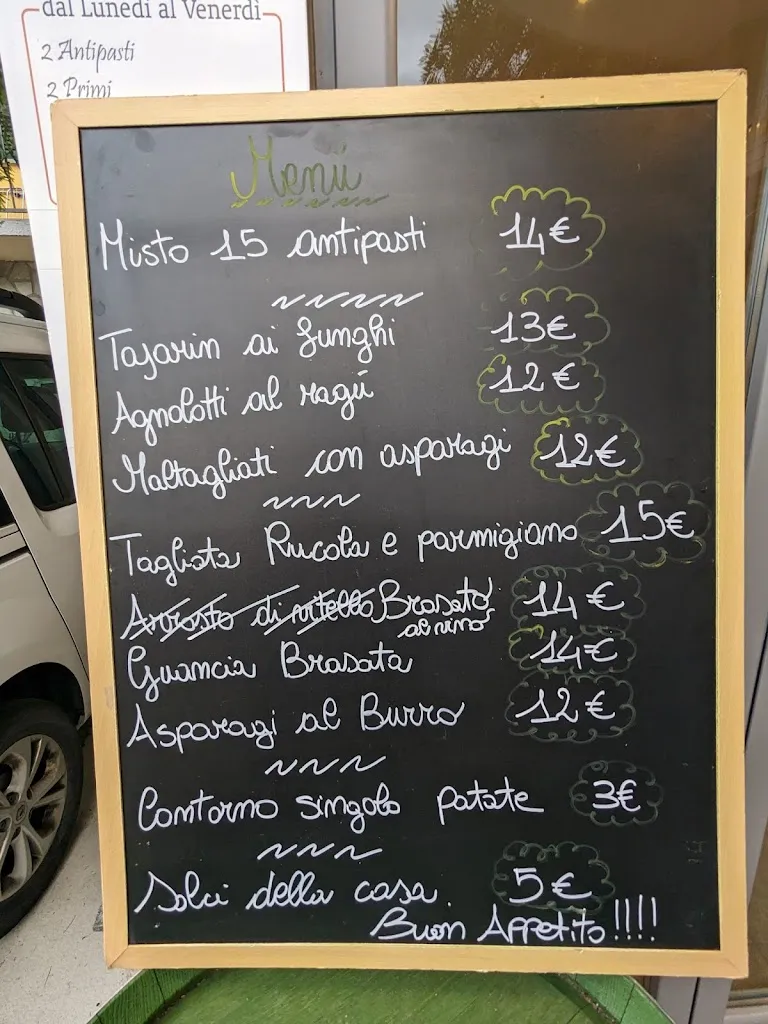 dal Lunedì al Venerdì
2 Antipasti
2 Primi
Menú
Misto 15 antipasti 14€
Tajarin ai funghi 13€
Agnolotti al ragú 12€
Maltagliati con asparagi 12€
Tagliata Rucola e parmigiano 15€
Arrosto di vitello Brasato 14€
al vino
Guancia Brasata 14€
Asparagi al Burro 12€
Contorno singolo patate 3€
Dolci della casa. 5€
Buon Appetito!!!!